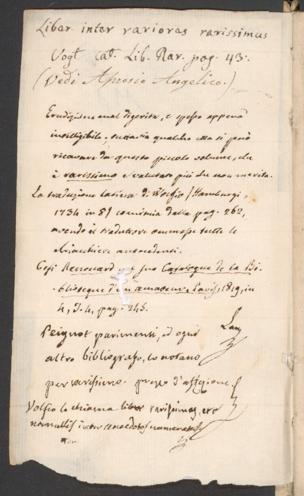 Liber inter rariores rarissimus
Vogt Cat. Lib. Rar. pag. 43.
(Vedi Aprosio Angelico.)
Erudizione mal digerita, e spesso appena
intelligibile, tuttavia qualche cosa si può
ricavare da questo piccolo volume, che
è rarissimo e valutato più che non merita.
La traduzione latina di Wolfio (Hamburgi,
1734 in 8) comincia dalla pag. 262,
avendo il traduttore ommesse tutte le
antecedenti.
Così Renouard nel suo Catalogue de la Bi-
bliotheque d'un amateur, Paris 1819, in
4, pag. 245.
Peignot parimenti, ed ogni
altro bibliografo, lo notano
per rarissimo
Volfio lo chiama liber rarissimus, et a
nonnullis inter anecdotos numeratus